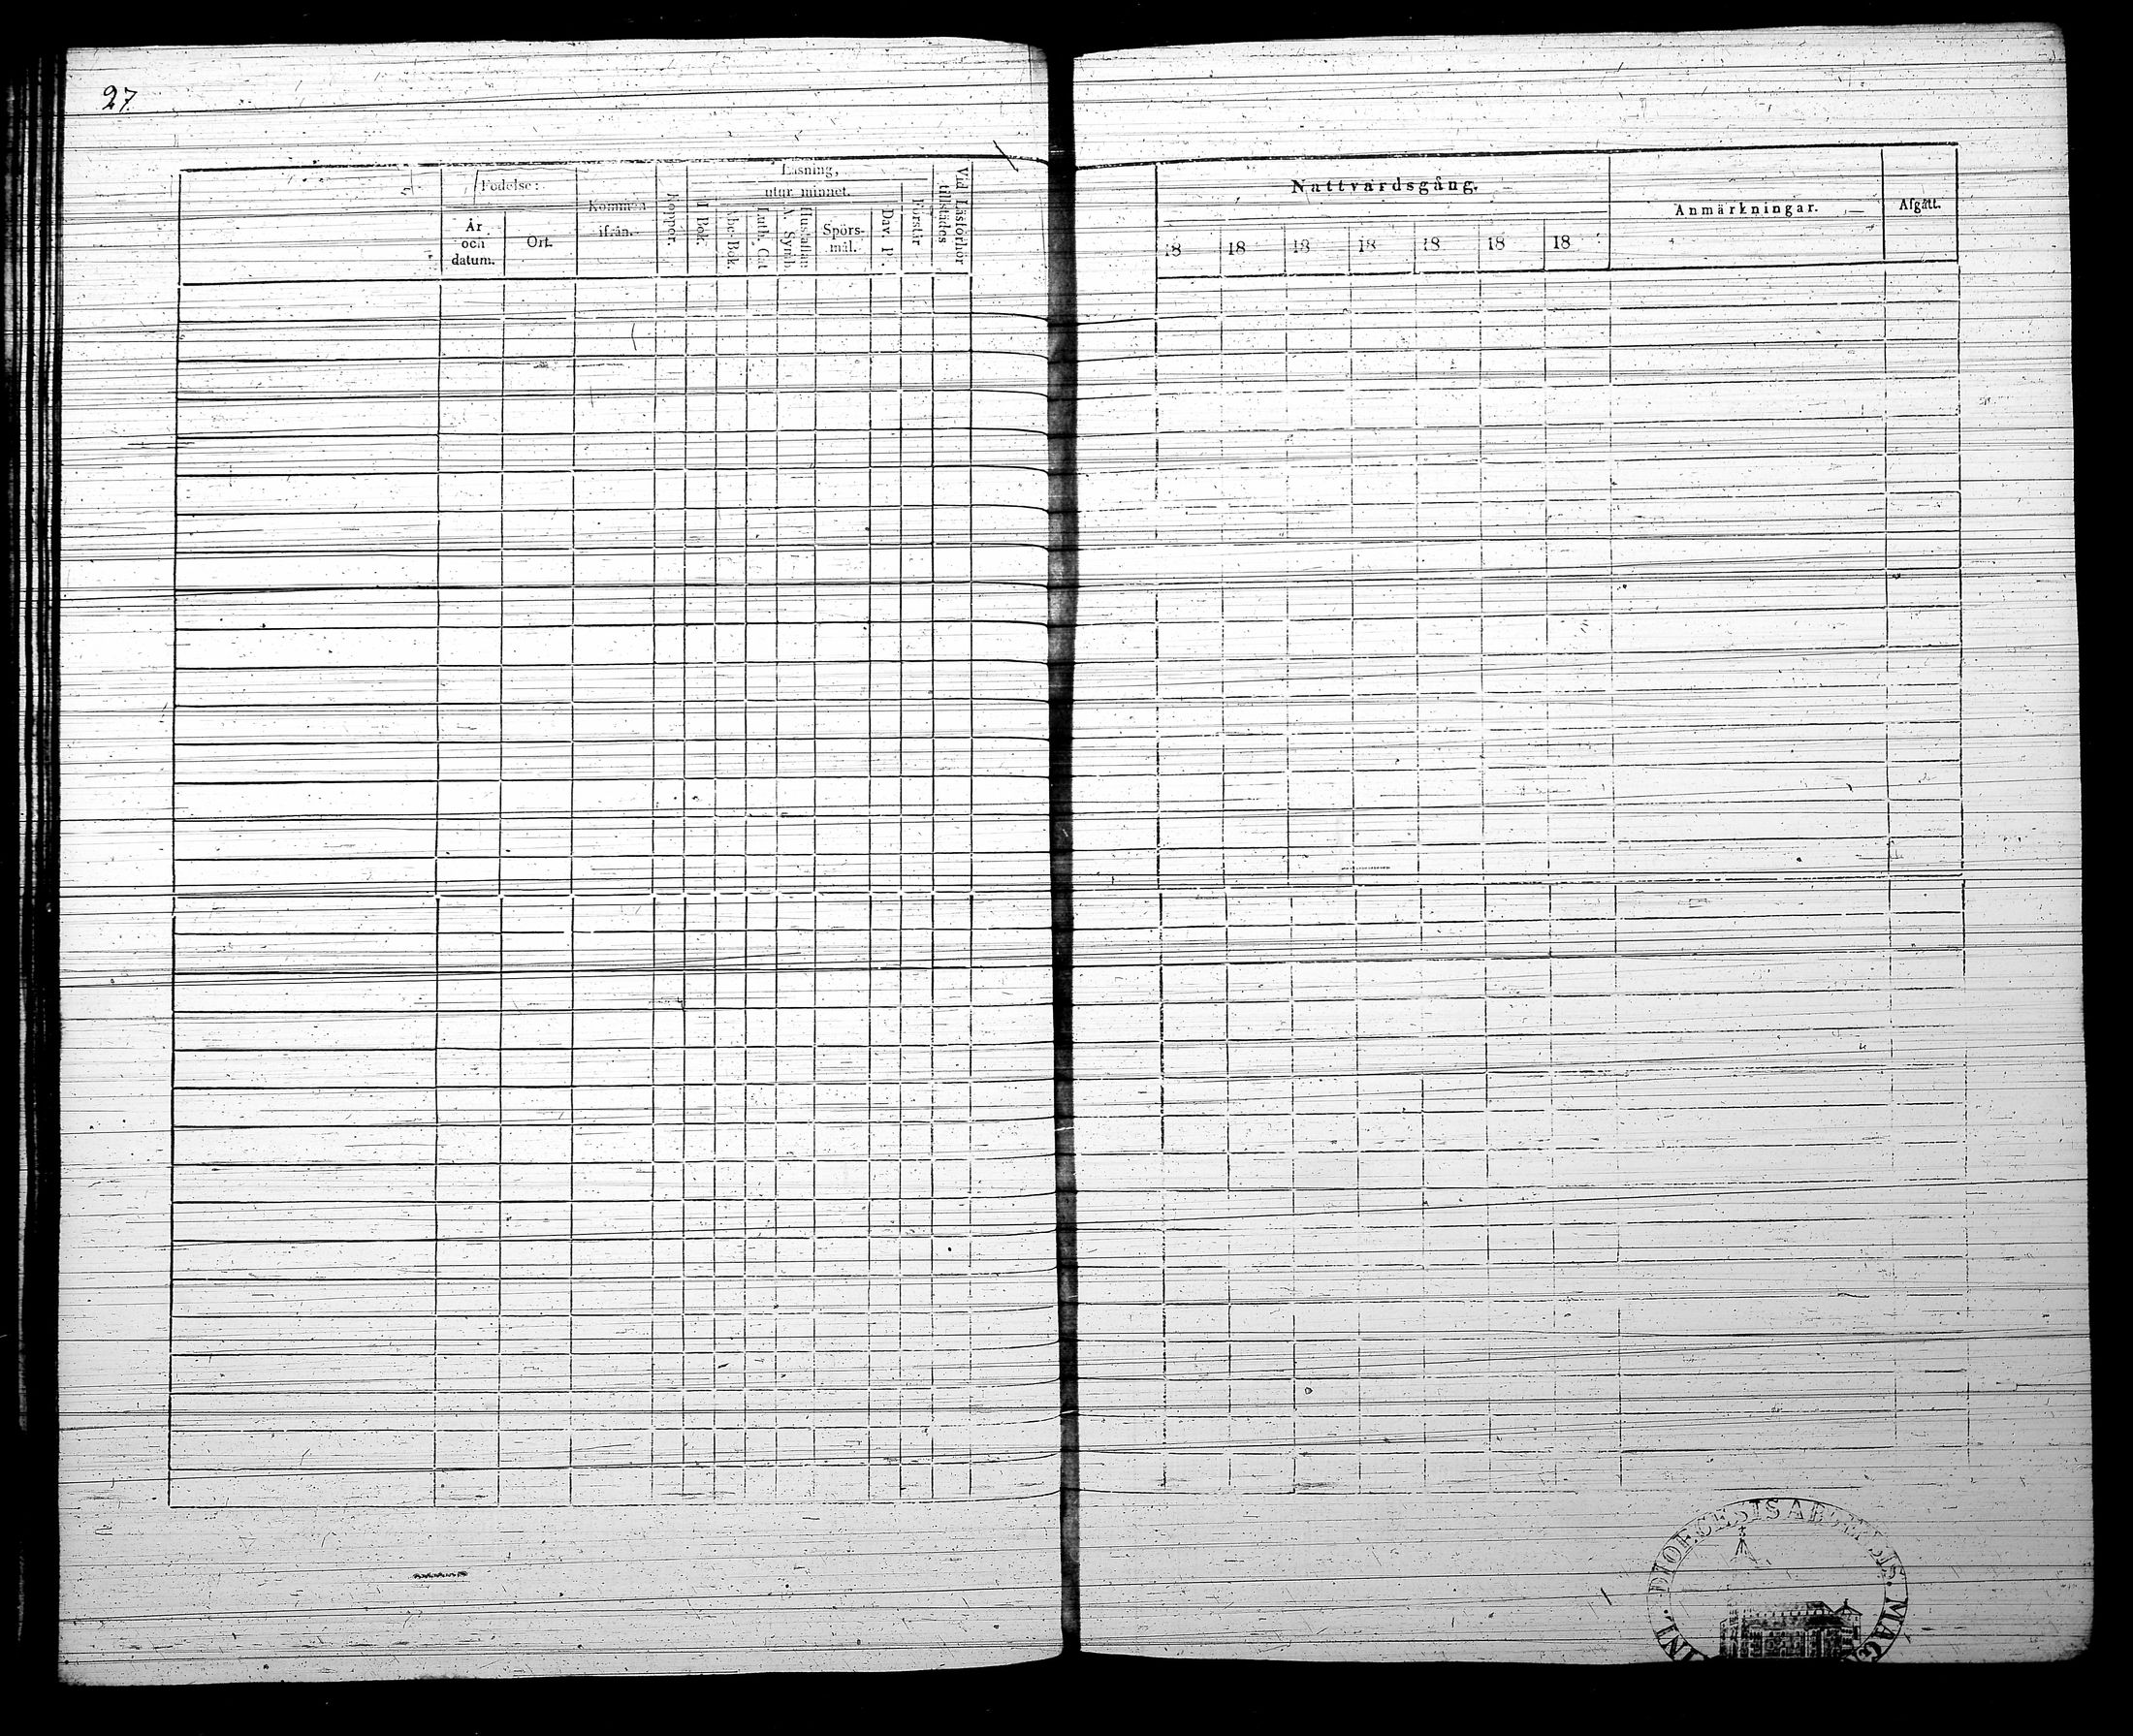 27.
Födelse:
År och datum.
Ort.
Kommen ifrån.
Koppor.
Läsning,
utur minnet.
I Bok.
Abc-Bok.
Luth. Cat
A. Symb.
Hustaflan
Spörs-mål.
Dav. P.
Förstår
Vid Läsförhör tillstädes
Nattvardsgång.
18 18 18 18 18 18 18
Anmärkningar.
Afgått.
DIOECESIS ABOENSIS. MAG